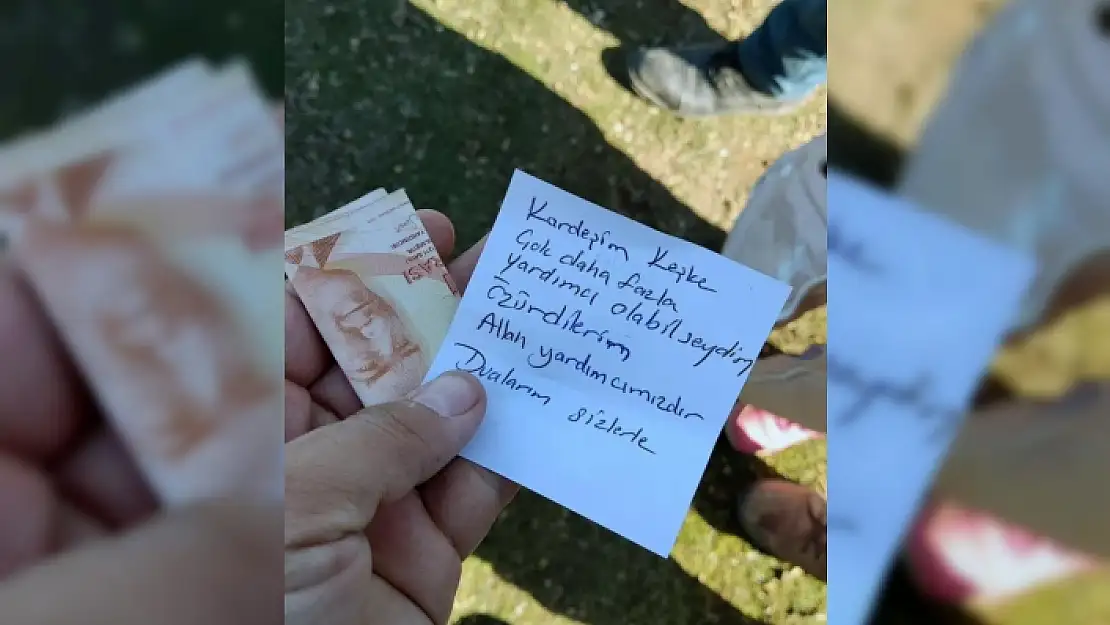 Kardeşim Keşke
Çok daha fazla
yardımcı olabilseydim
Özürdilerim
Allah yardımcımızdır
Dualarım sizlerle